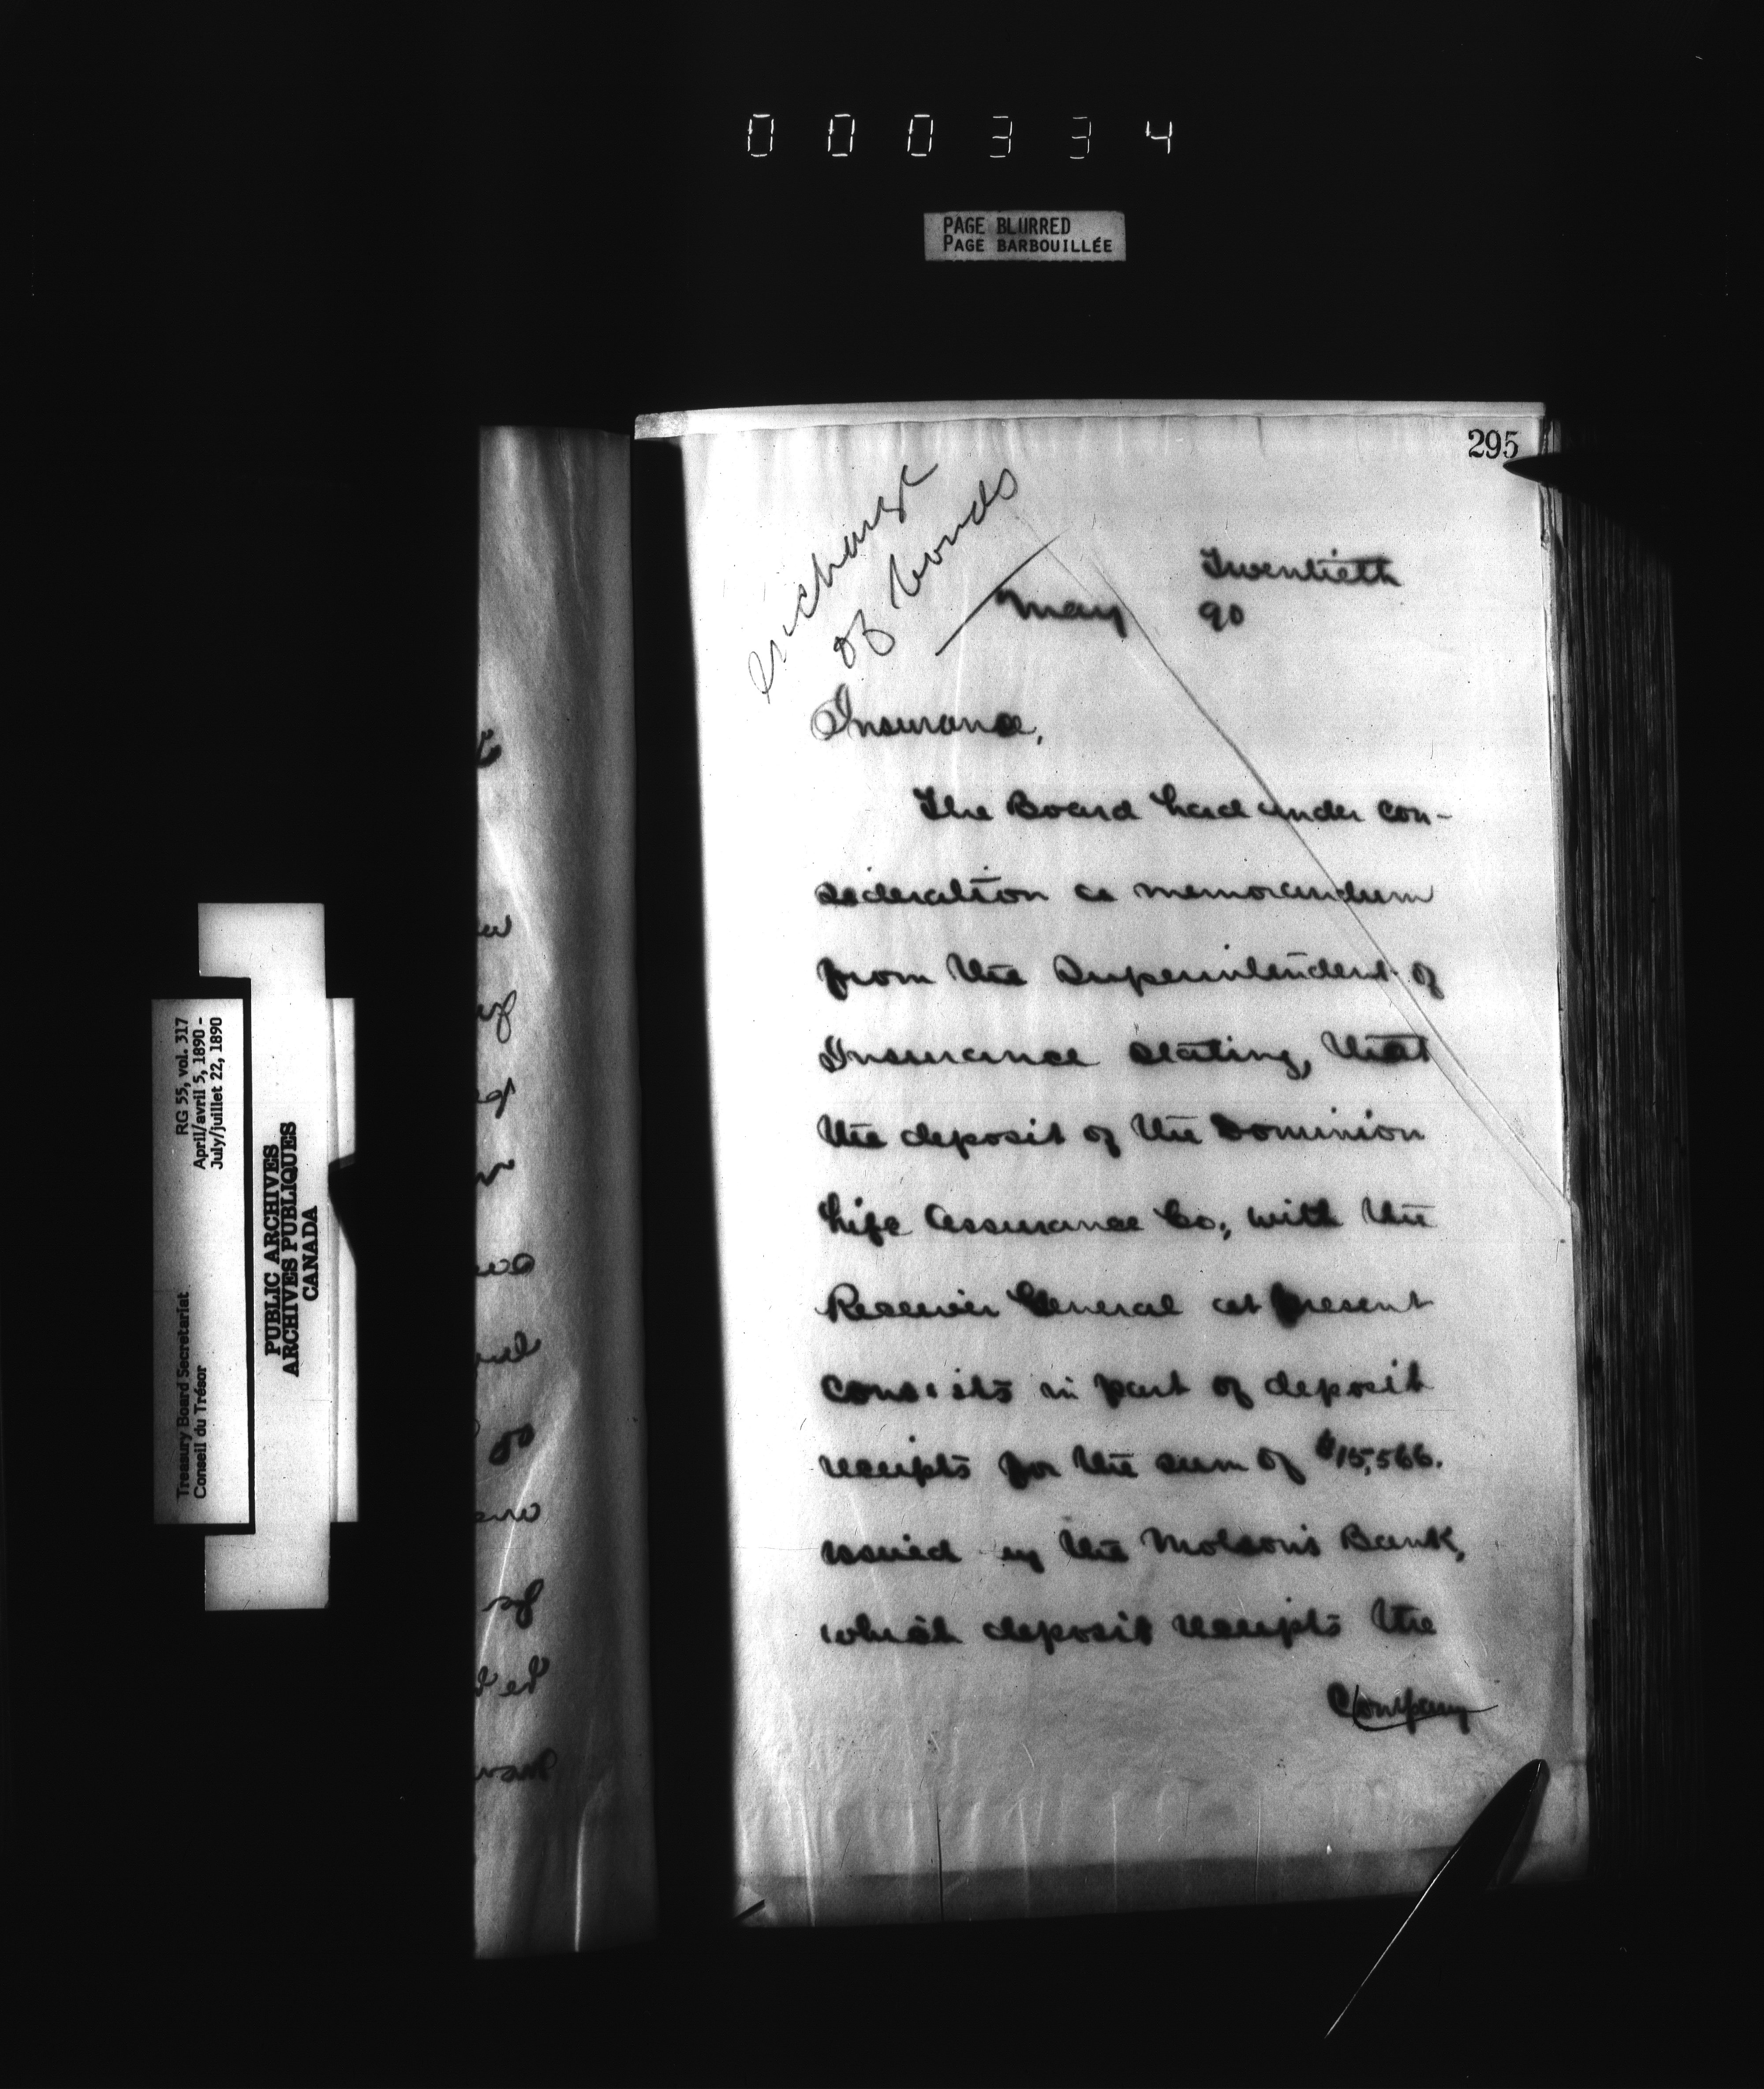 000334
PAGE BLURRED
PAGE BARBOUILLÉE
295
exchange
of bonds
Twentieth
May 90
Insurance,
The Board had under con-
sideration a memorandum
from the Superintendent of
Insurance stating, that
the deposit of the Dominion
Life Assurance Co; with the
Receiver General at present
consists in part of deposit
receipts for the sum of $15,566.
issued by the Molson's Bank,
which deposit receipts the
Company
RG 55, vol. 317
April/avril 5, 1890 -
July/juillet 22, 1890
Treasury Board Secretariat
Conseil du Trésor
PUBLIC ARCHIVES
ARCHIVES PUBLIQUES
CANADA